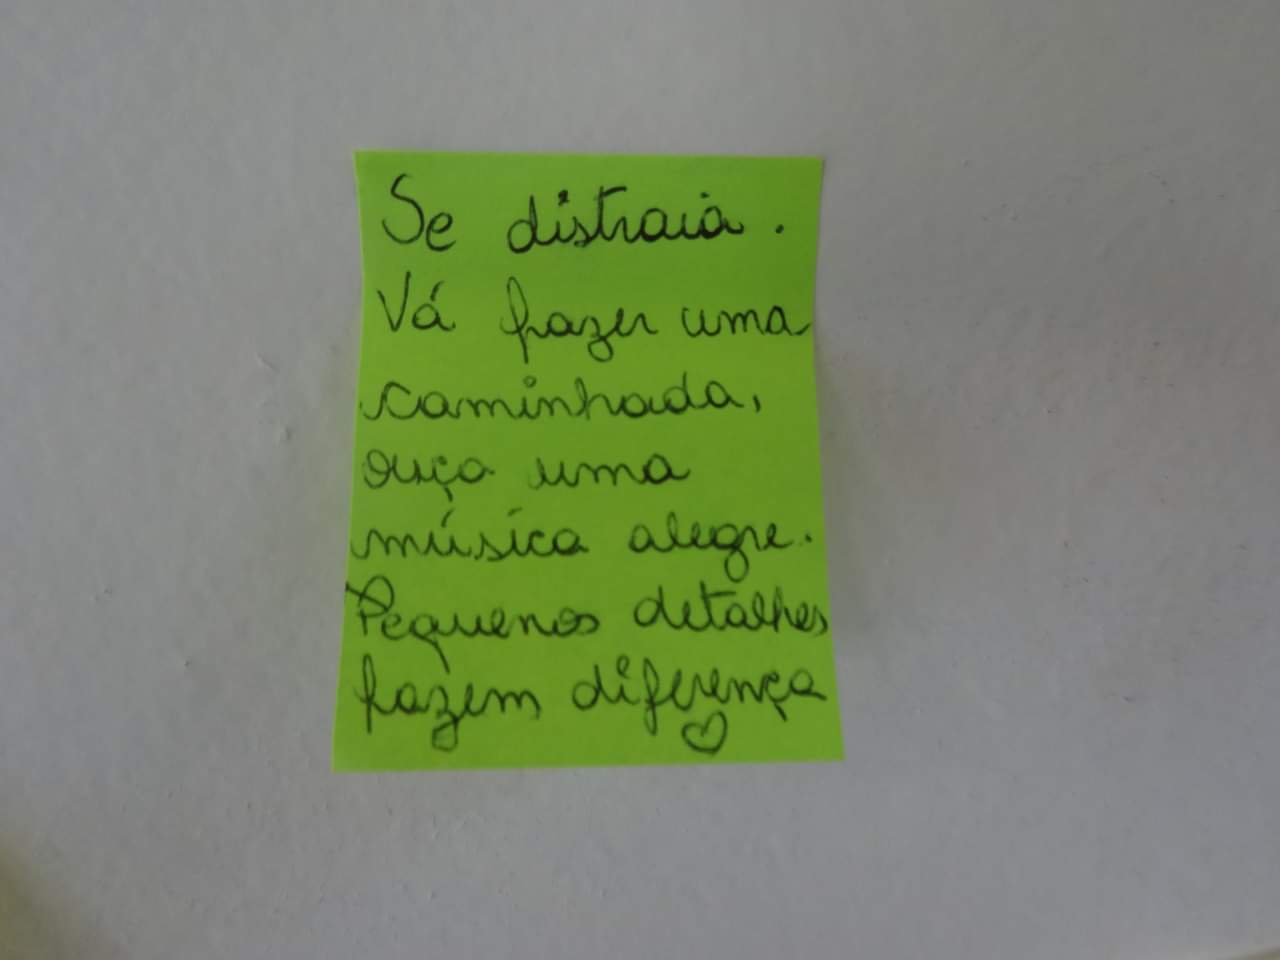 Se distraia.
Vá fazer uma
caminhada,
ouça uma
música alegre.
Pequenos detalhes
fazem diferença
♡